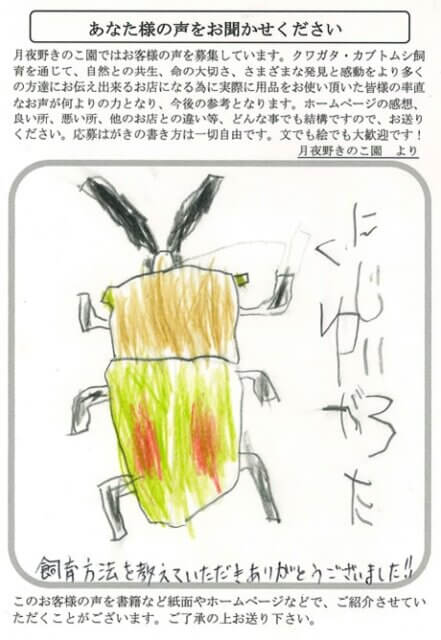 あなた様の声をお聞かせください
月夜野きのこ園ではお客様の声を募集しています。クワガタ・カブトムシ飼
育を通じて、自然との共生、命の大切さ、さまざまな発見と感動をより多く
の方達にお伝え出来るお店になる為に実際に用品をお使い頂いた皆様の率直
なお声が何よりの力となり、今後の参考となります。ホームページの感想、
良い所、悪い所、他のお店との違い等、どんな事でも結構ですので、お送り
ください。応募はがきの書き方は一切自由です。文でも絵でも大歓迎です!
月夜野きのこ園 より
にじいろ
くわがた
飼育方法を教えていただきありがとうございました!!
このお客様の声を書籍など紙面やホームページなどで、ご紹介させてい
ただくことがございます。ご了承の上お送り下さい。